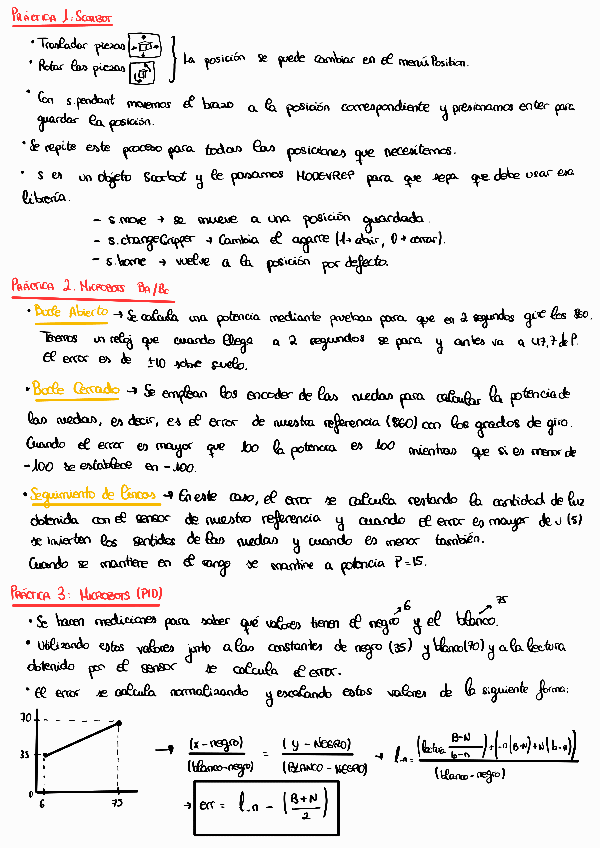 PRÁCTICA 1: SCORBOT
· Trasladar piezas
· Rotar las piezas
La posición se puede cambiar en el menú Position.
· Con s.pendant movemos el brazo a la posición correspondiente y presionamos enter para
guardar la posición.
· Se repite este proceso para todas las posiciones que necesitemos.
· s es un objeto Scorbot y le pasamos MODEVREP para que sepa que debe usar esa
librería.
- s.move → se mueve a una posición guardada.
- s.changeGripper → Cambia el agarre (1→abrir, 0→cerrar).
- s.home → vuelve a la posición por defecto.
PRÁCTICA 2. MICROBOTS BA/BC
· Bucle Abierto → Se calcula una potencia mediante pruebas para que en 2 segundos gire los 860.
Tenemos un reloj que cuando llega a 2 segundos se para y antes va a 47,7 de P.
El error es de ±10 sobre suelo.
· Bucle Cerrado → Se emplean los encoder de las ruedas para calcular la potencia de
las ruedas, es decir, es el error de nuestra referencia (860) con los grados de giro.
Cuando el error es mayor que 100 la potencia es 100 mientras que si es menor de
-100 se establece en -100.
· Seguimiento de líneas → En este caso, el error se calcula restando la cantidad de luz
obtenida con el sensor de nuestra referencia y cuando el error es mayor de (5)
se invierten los sentidos de las ruedas y cuando es menor también.
Cuando se mantiene en el rango se mantine a potencia P=15.
PRÁCTICA 3: MICROBOTS (PID)
6 75
· Se hacen mediciones para saber qué valores tienen el negro y el blanco.
· Utilizando estos valores junto a las constantes de negro (35) y blanco(70) y a la lectura
obtenida por el sensor se calcula el error.
· El error se calcula normalizando y escalando estos valores de la siguiente forma:
70
35
0
6 75
→ (x-negro)/(blanco-negro) = (y-NEGRO)/(BLANCO-NEGRO) →
(blanco-negro)
→ err = l_n - (B+N/2)